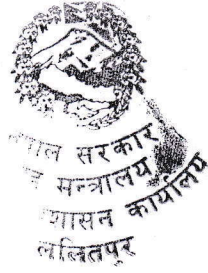 सरकार
मन्त्रालय
कार्यालय
ललितपुर